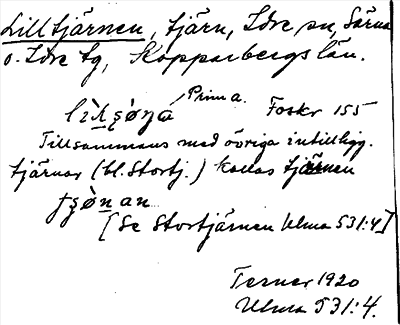 Lilltjärnen, tjärn, Idre sn, Särna
o. Idre tg, Kopparbergs län.
Prim a.
Foskr 155
Tillsammans med övriga intillligg.
tjärnar (bl. Stortj.) kallas tjärnen
[Se Stortjärnen Ulma 531:4]
Terner 1920
Ulma 531:4.